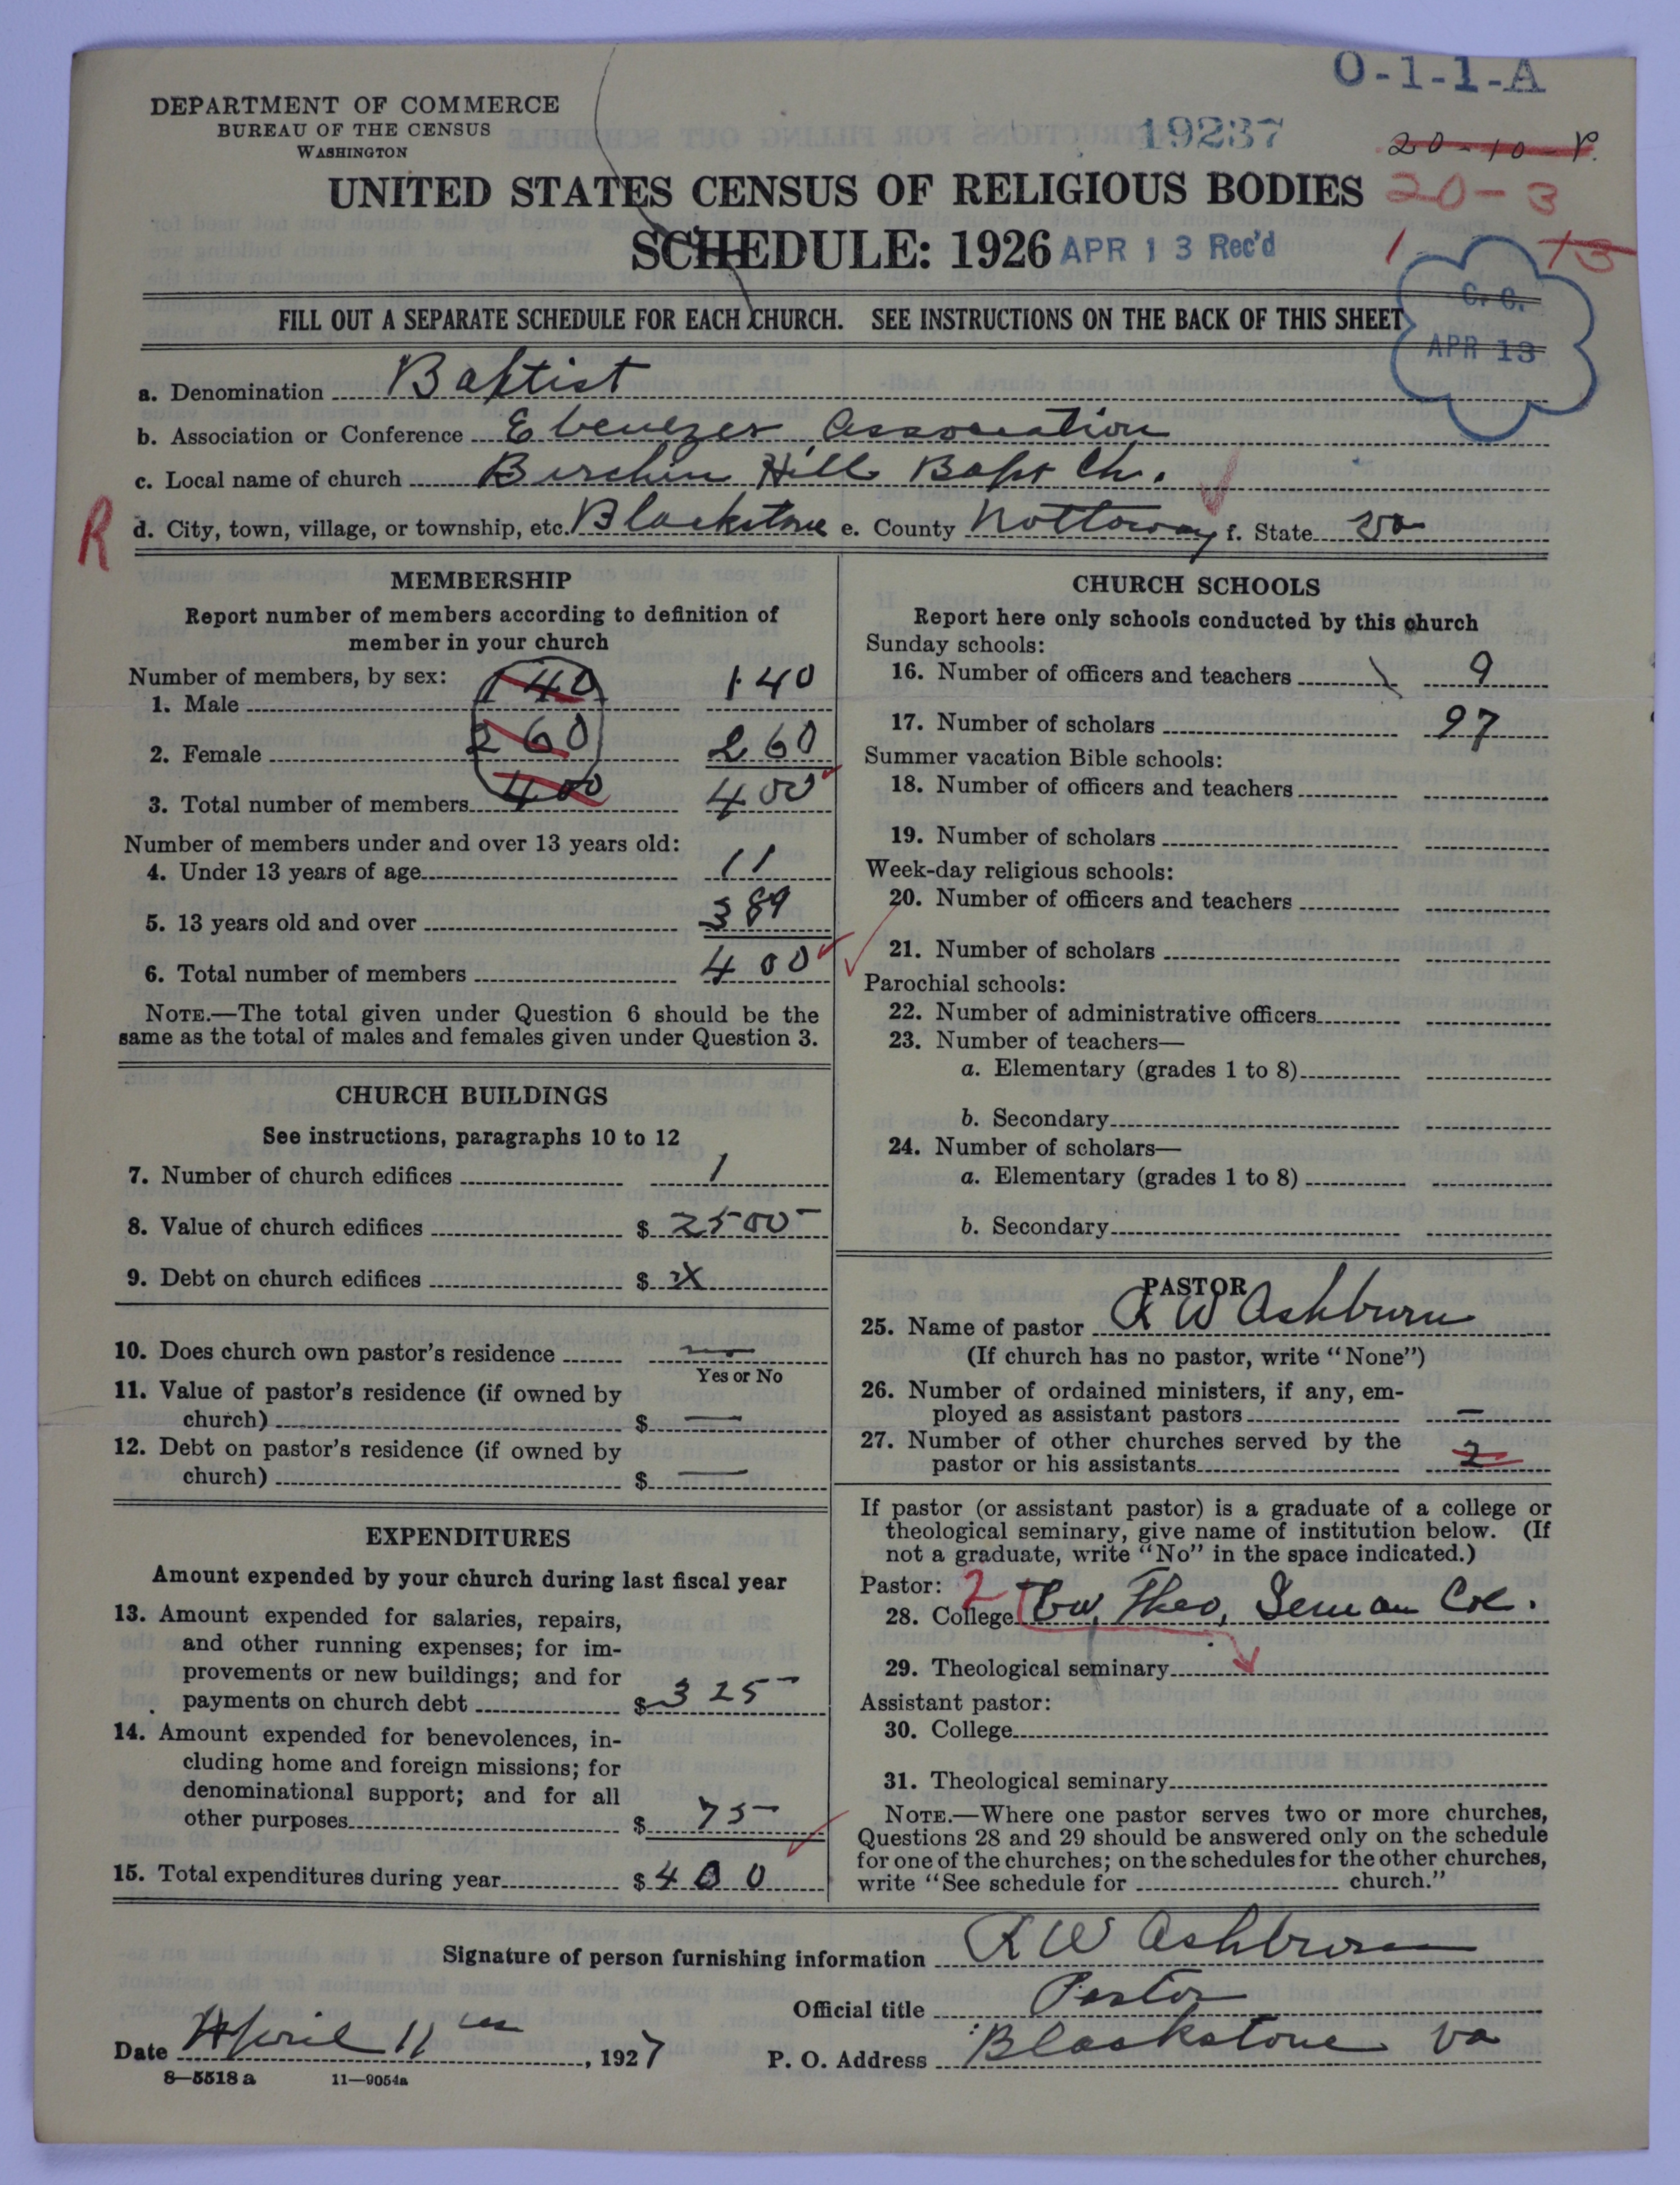 O-1-1-A
DEPARTMENT OF COMMERCE
BUREAU OF THE CENSUS
WASHINGTON
19237
20-10-P.
UNITED STATES CENSUS OF RELIGIOUS BODIES
20-3
SCHEDULE: 1926
APR 13 Rec'd
1-13
C. O.
APR 13
FILL OUT A SEPARATE SCHEDULE FOR EACH CHURCH. SEE INSTRUCTIONS ON THE BACK OF THIS SHEET
a. Denomination Baptist
b. Association or Conference Ebenezer Association
c. Local name of church Birchin Hill Bapt Ch.
R
d. City, town, village, or township, etc. Blackstone e. County Nottoway f. State Va
MEMBERSHIP
Report number of members according to definition of
member in your church
Number of members, by sex:
1. Male 140 140
2. Female 260 260
3. Total number of members 400 400
Number of members under and over 13 years old:
4. Under 13 years of age 11
5. 13 years old and over 389
6. Total number of members 400
NOTE.—The total given under Question 6 should be the
same as the total of males and females given under Question 3.
CHURCH BUILDINGS
See instructions, paragraphs 10 to 12
7. Number of church edifices 1
8. Value of church edifices $ 2500-
9. Debt on church edifices $ X
10. Does church own pastor's residence no
Yes or No
11. Value of pastor's residence (if owned by
church) $ —
12. Debt on pastor's residence (if owned by
church) $ —
EXPENDITURES
Amount expended by your church during last fiscal year
13. Amount expended for salaries, repairs,
and other running expenses; for im-
provements or new buildings; and for
payments on church debt $ 325-
14. Amount expended for benevolences, in-
cluding home and foreign missions; for
denominational support; and for all
other purposes $ 75-
15. Total expenditures during year $ 400
CHURCH SCHOOLS
Report here only schools conducted by this church
Sunday schools:
16. Number of officers and teachers 9
17. Number of scholars 97
Summer vacation Bible schools:
18. Number of officers and teachers
19. Number of scholars
Week-day religious schools:
20. Number of officers and teachers
21. Number of scholars
Parochial schools:
22. Number of administrative officers
23. Number of teachers—
a. Elementary (grades 1 to 8)
b. Secondary
24. Number of scholars—
a. Elementary (grades 1 to 8)
b. Secondary
PASTOR
25. Name of pastor R W Ashburn
(If church has no pastor, write "None")
26. Number of ordained ministers, if any, em-
ployed as assistant pastors —
27. Number of other churches served by the
pastor or his assistants 2
If pastor (or assistant pastor) is a graduate of a college or
theological seminary, give name of institution below. (If
not a graduate, write "No" in the space indicated.)
Pastor: 2
28. College Theo,
29. Theological seminary
Assistant pastor:
30. College
31. Theological seminary
NOTE.—Where one pastor serves two or more churches,
Questions 28 and 29 should be answered only on the schedule
for one of the churches; on the schedules for the other churches,
write "See schedule for church."
Signature of person furnishing information R W Ashburn
Official title Pastor
Date April 11, 1927
P. O. Address Blackstone Va
8—5518 a 11—9054a